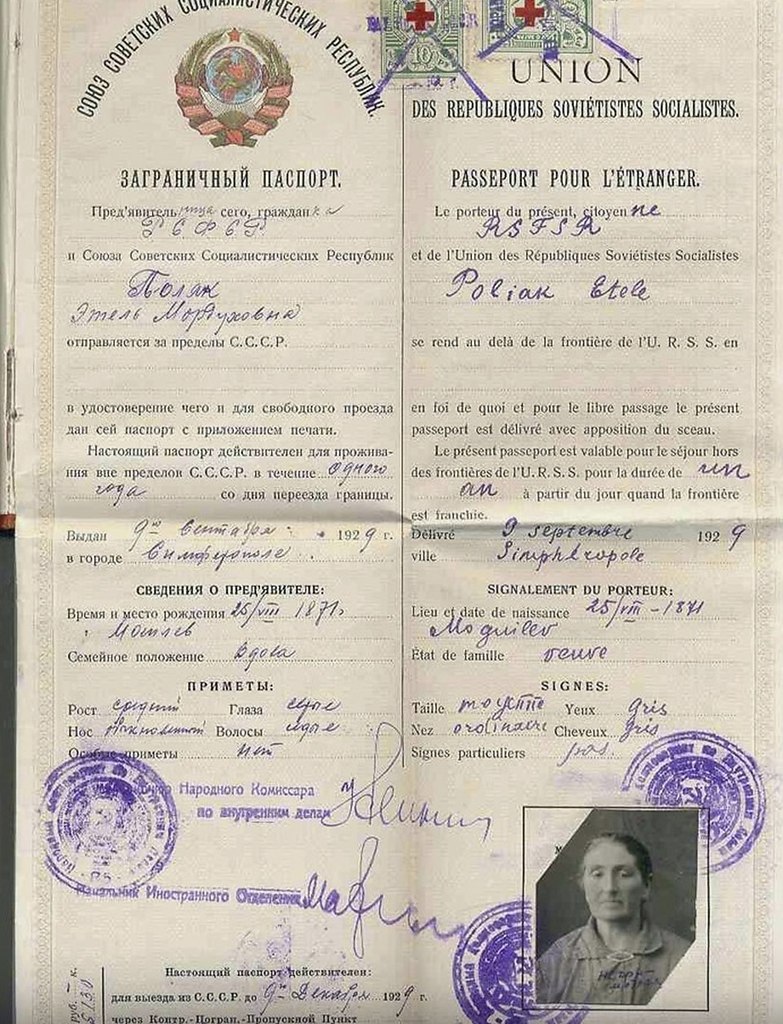 СОЮЗ СОВЕТСКИХ СОЦИАЛИСТИЧЕСКИХ РЕСПУБЛИК.
ЗАГРАНИЧНЫЙ ПАСПОРТ.
Пред'явительница сего, гражданка
РСФСР
и Союза Советских Социалистических Республик
Поляк
Этель Мордуховна
отправляется за пределы С.С.С.Р.
в удостоверение чего и для свободного проезда
дан сей паспорт с приложением печати.
Настоящий паспорт действителен для прожива-
ния вне пределов С.С.С.Р. в течение одного
года со дня переезда границы.
Выдан 9го Сентября 1929 г.
в городе Симферополе
СВЕДЕНИЯ О ПРЕД'ЯВИТЕЛЕ:
Время и место рождения 25/VIII 1871.
Могилев
Семейное положение Вдова
ПРИМЕТЫ:
Рост средний Глаза серые
Нос обыкновенный Волосы седые
Особые приметы нет
Народного Комиссара
по внутренним делам
Начальник Иностранного Отделения
Настоящий паспорт действителен:
для выезда из С.С.С.Р. до 9го Декабря 1929 г.
через Контр.-Погран.-Пропускной Пункт
10
UNION
DES REPUBLIQUES SOVIÉTISTES SOCIALISTES.
PASSEPORT POUR L'ÉTRANGER.
Le porteur du présent, citoyenne
RSFSR
et de l'Union des Républiques Soviétistes Socialistes
Poliak Etele
se rend au delà de la frontière de l'U. R. S. S. en
en foi de quoi et pour le libre passage le présent
passeport est délivré avec apposition du sceau.
Le présent passeport est valable pour le séjour hors
des frontières de l'U. R. S. S. pour la durée de un
an à partir du jour quand la frontière
est franchie.
Délivré 9 septembre 1929
ville Simphéropole
SIGNALEMENT DU PORTEUR:
Lieu et date de naissance 25/VIII - 1871
Moguilev
État de famille veuve
SIGNES:
Taille moyenne Yeux gris
Nez ordinaire Cheveux gris
Signes particuliers pas.